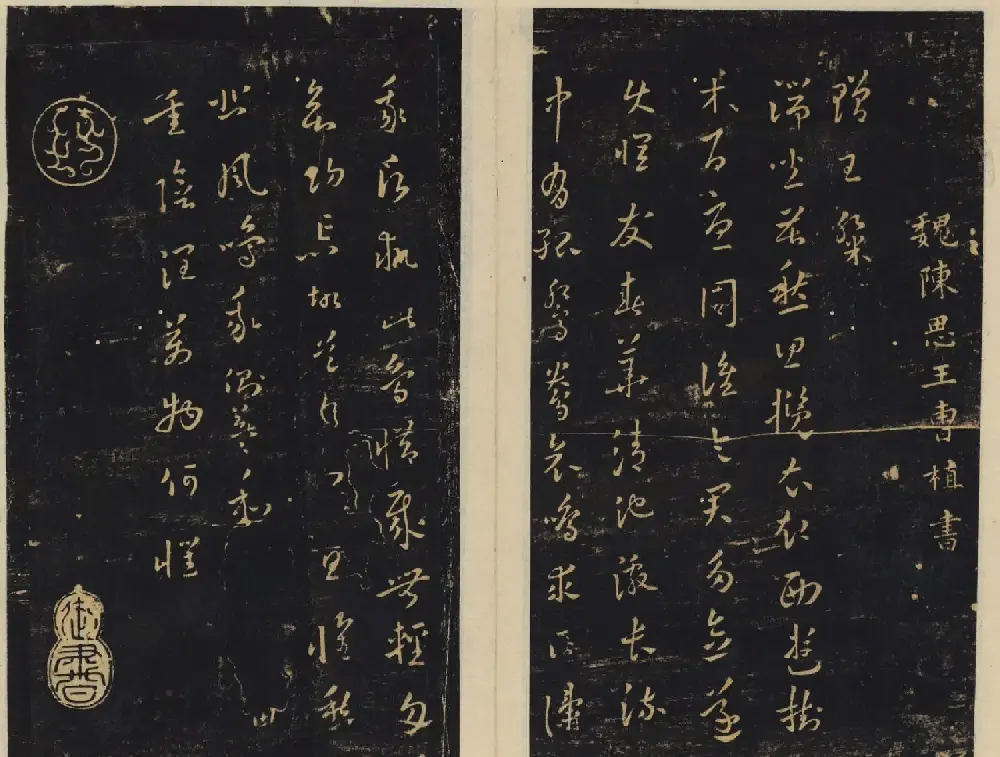 魏陳思王曹植書
贈王粲
端坐苦愁思攬衣起西遊樹
木百憂周誰令君多念遂
使懷發春華清池激長流
中有孤鴛鴦哀鳴求匹儔
我願執此鳥惜哉無輕舟
欲歸忘故道顧望但懷愁
悲風鳴我側羲和
重陰潤萬物何懼